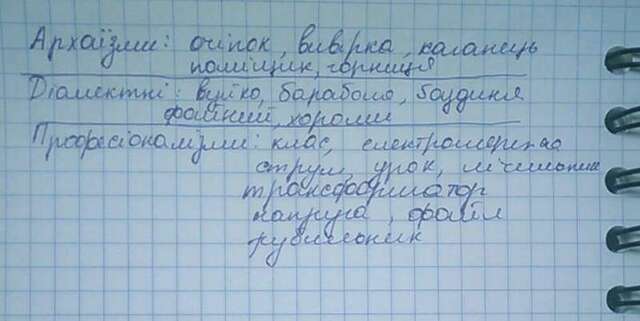 Архаїзми: очіпок, вивірка, каганець
поміщик, горниця
Діалектні: вуйко, бараболя, бодиня
файний, хороми
Професіоналізми: клас, електромережа
струм, урок, лічильник
трансформатор
напруга, файл
рубильник